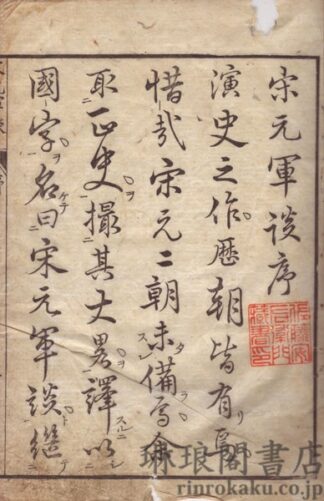 宋元軍談序
演史之作歴朝皆有焉
惜哉宋元二朝未備焉余
取正史撮其大畧譯以
國字名曰宋元軍談継
琳琅閣書店
rinrokaku.co.jp